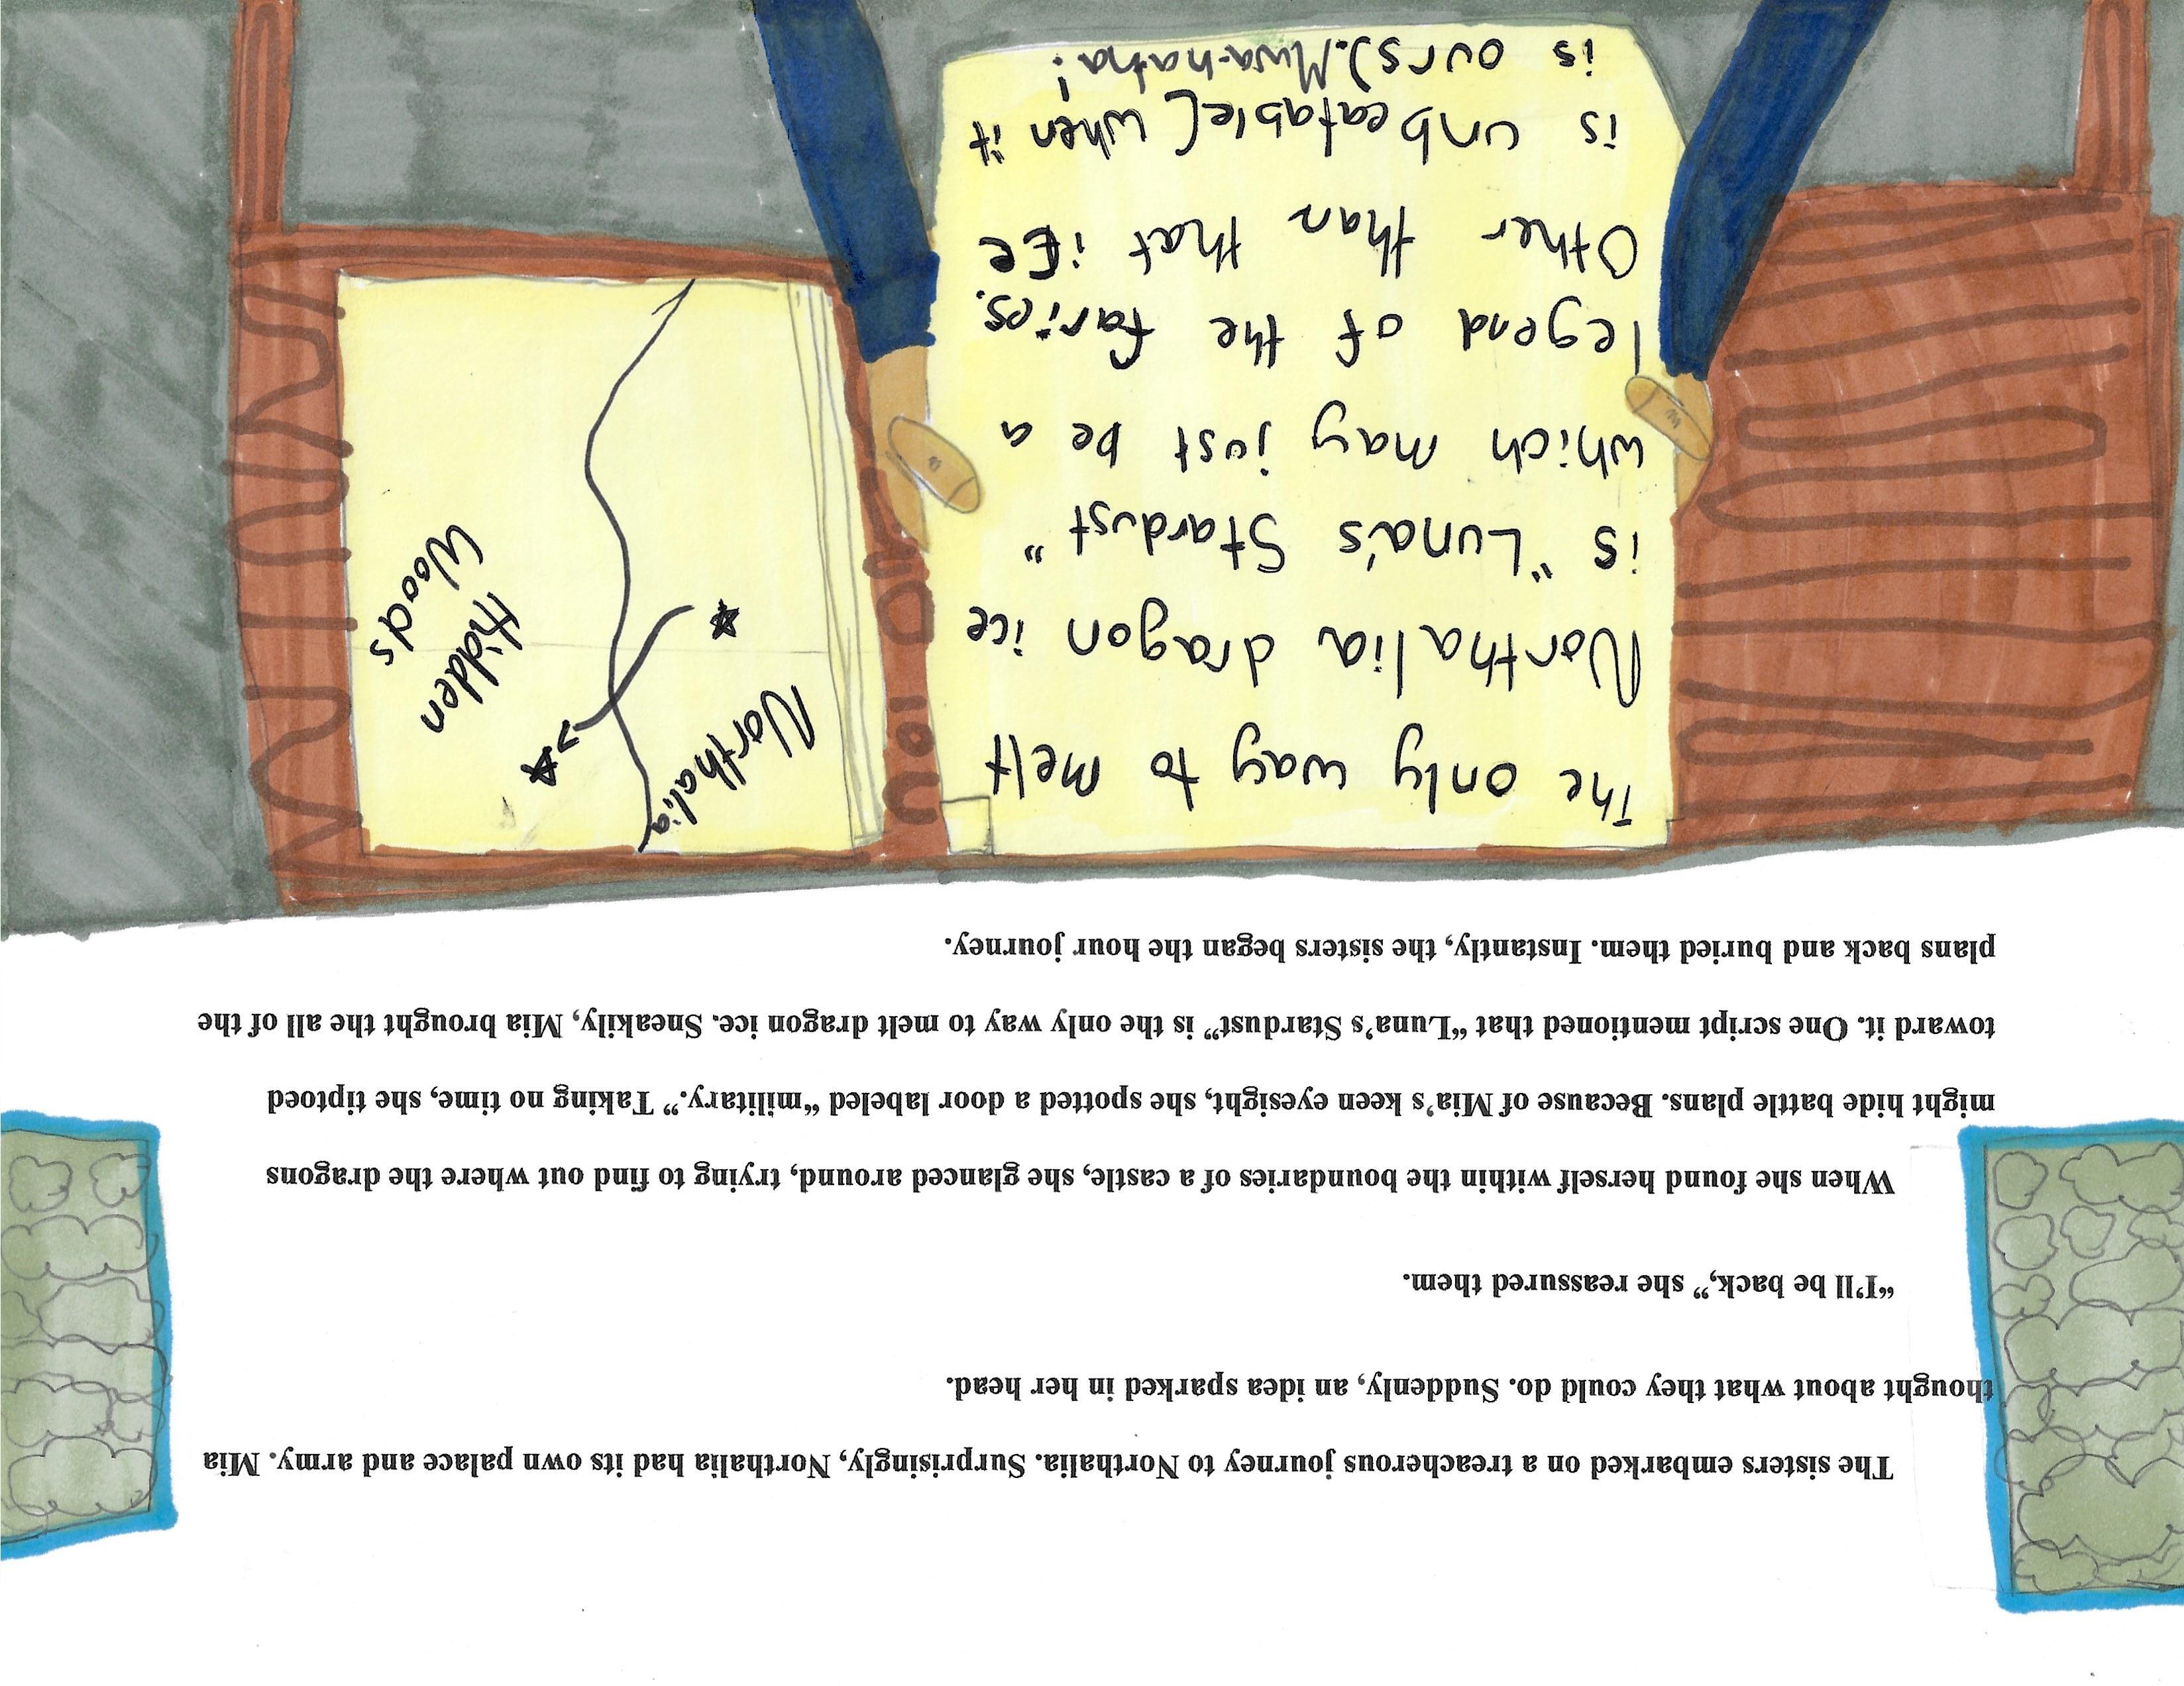 The sisters embarked on a treacherous journey to Northalia. Surprisingly, Northalia had its own palace and army. Mia
thought about what they could do. Suddenly, an idea sparked in her head.
“I’ll be back,” she reassured them.
When she found herself within the boundaries of a castle, she glanced around, trying to find out where the dragons
might hide battle plans. Because of Mia’s keen eyesight, she spotted a door labeled “military.” Taking no time, she tiptoed
toward it. One script mentioned that “Luna’s Stardust” is the only way to melt dragon ice. Sneakily, Mia brought the all of the
plans back and buried them. Instantly, the sisters began the hour journey.
The only way to melt
Northalia dragon ice
is “Luna's Stardust”
which may just be a
legend of the faries.
Other than that ice
is unbeatable( when it
is ours). Mwa-haha!
Northalia
Hidden
Woods